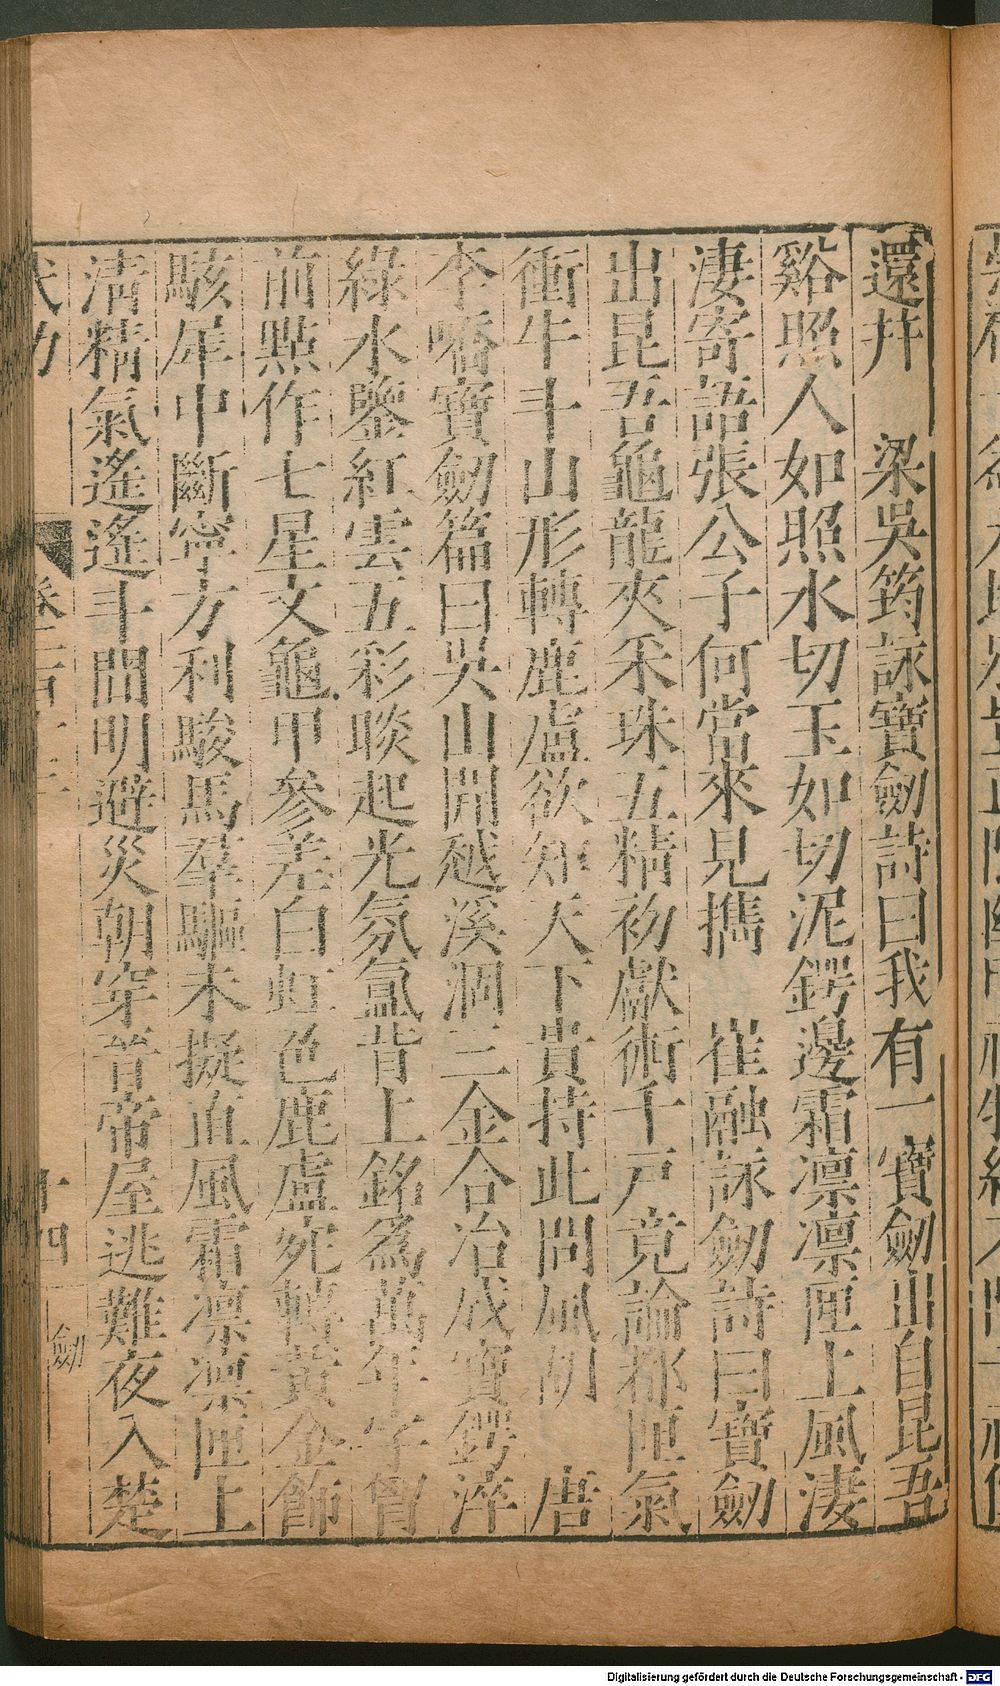 還井　梁吳筠詠寶劒詩曰我有一寶劒出自昆吾
谿照人如照水切玉如切泥鍔邊霜凛凛匣上風淒
淒寄語張公子何當來見攜　崔融詠劒詩曰寶劒
出昆吾龜龍夾采珠五精初獻術千戸竟論都匣氣
衝牛斗山形轉鹿盧欲知天下貴持此問風胡　唐
李嶠寶劒篇曰吳山開越溪涸三金合冶成寶鍔淬
綠水鑒紅雲五彩焰起光氛氳背上銘爲萬年字胷
前點作七星文龜甲參差白虹色鹿盧宛轉黃金飾
駭犀中斷寧方利駿馬羣驅未擬直風霜凛凛匣上
清精氣遙遙斗間明避災朝穿晉帝屋逃難夜入楚
十四
劒
Digitalisierung gefördert durch die Deutsche Forschungsgemeinschaft - DFG